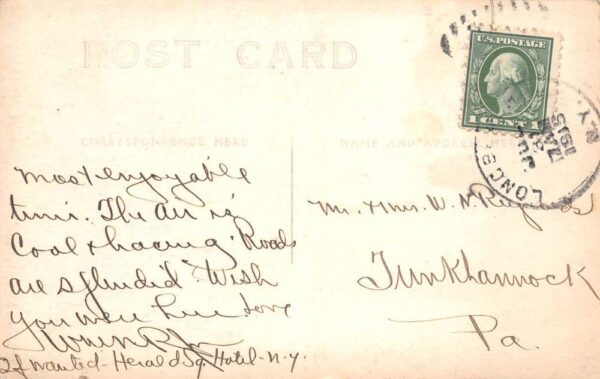 POST CARD
CORRESPONDENCE HERE
NAME AND ADDRESS HERE
U.S. POSTAGE
1 CENT 1
LONG B
N.Y.
1915
most enjoyable
time. The air is
Cool & bracing. Roads
are splendid. Wish
you were here Love
If wanted - Herald Sq. Hotel - N.Y.
Mr. & Mrs. W. N. Reynolds
Tunkhannock
Pa.